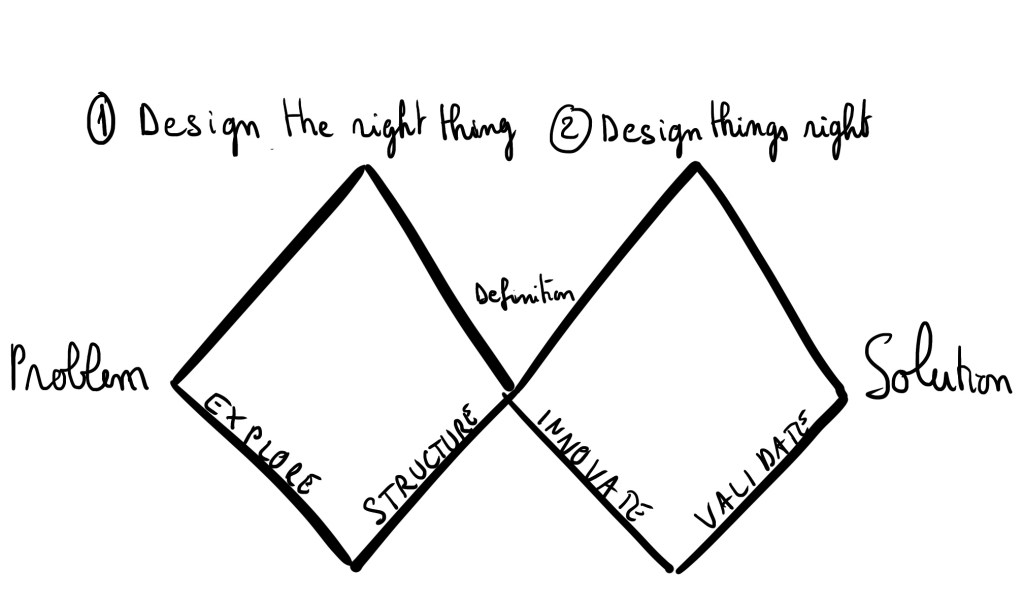 ① Design the right thing ② Design things right
Definition
Problem
Solution
EXPLORE
STRUCTURE
INNOVATE
VALIDATE